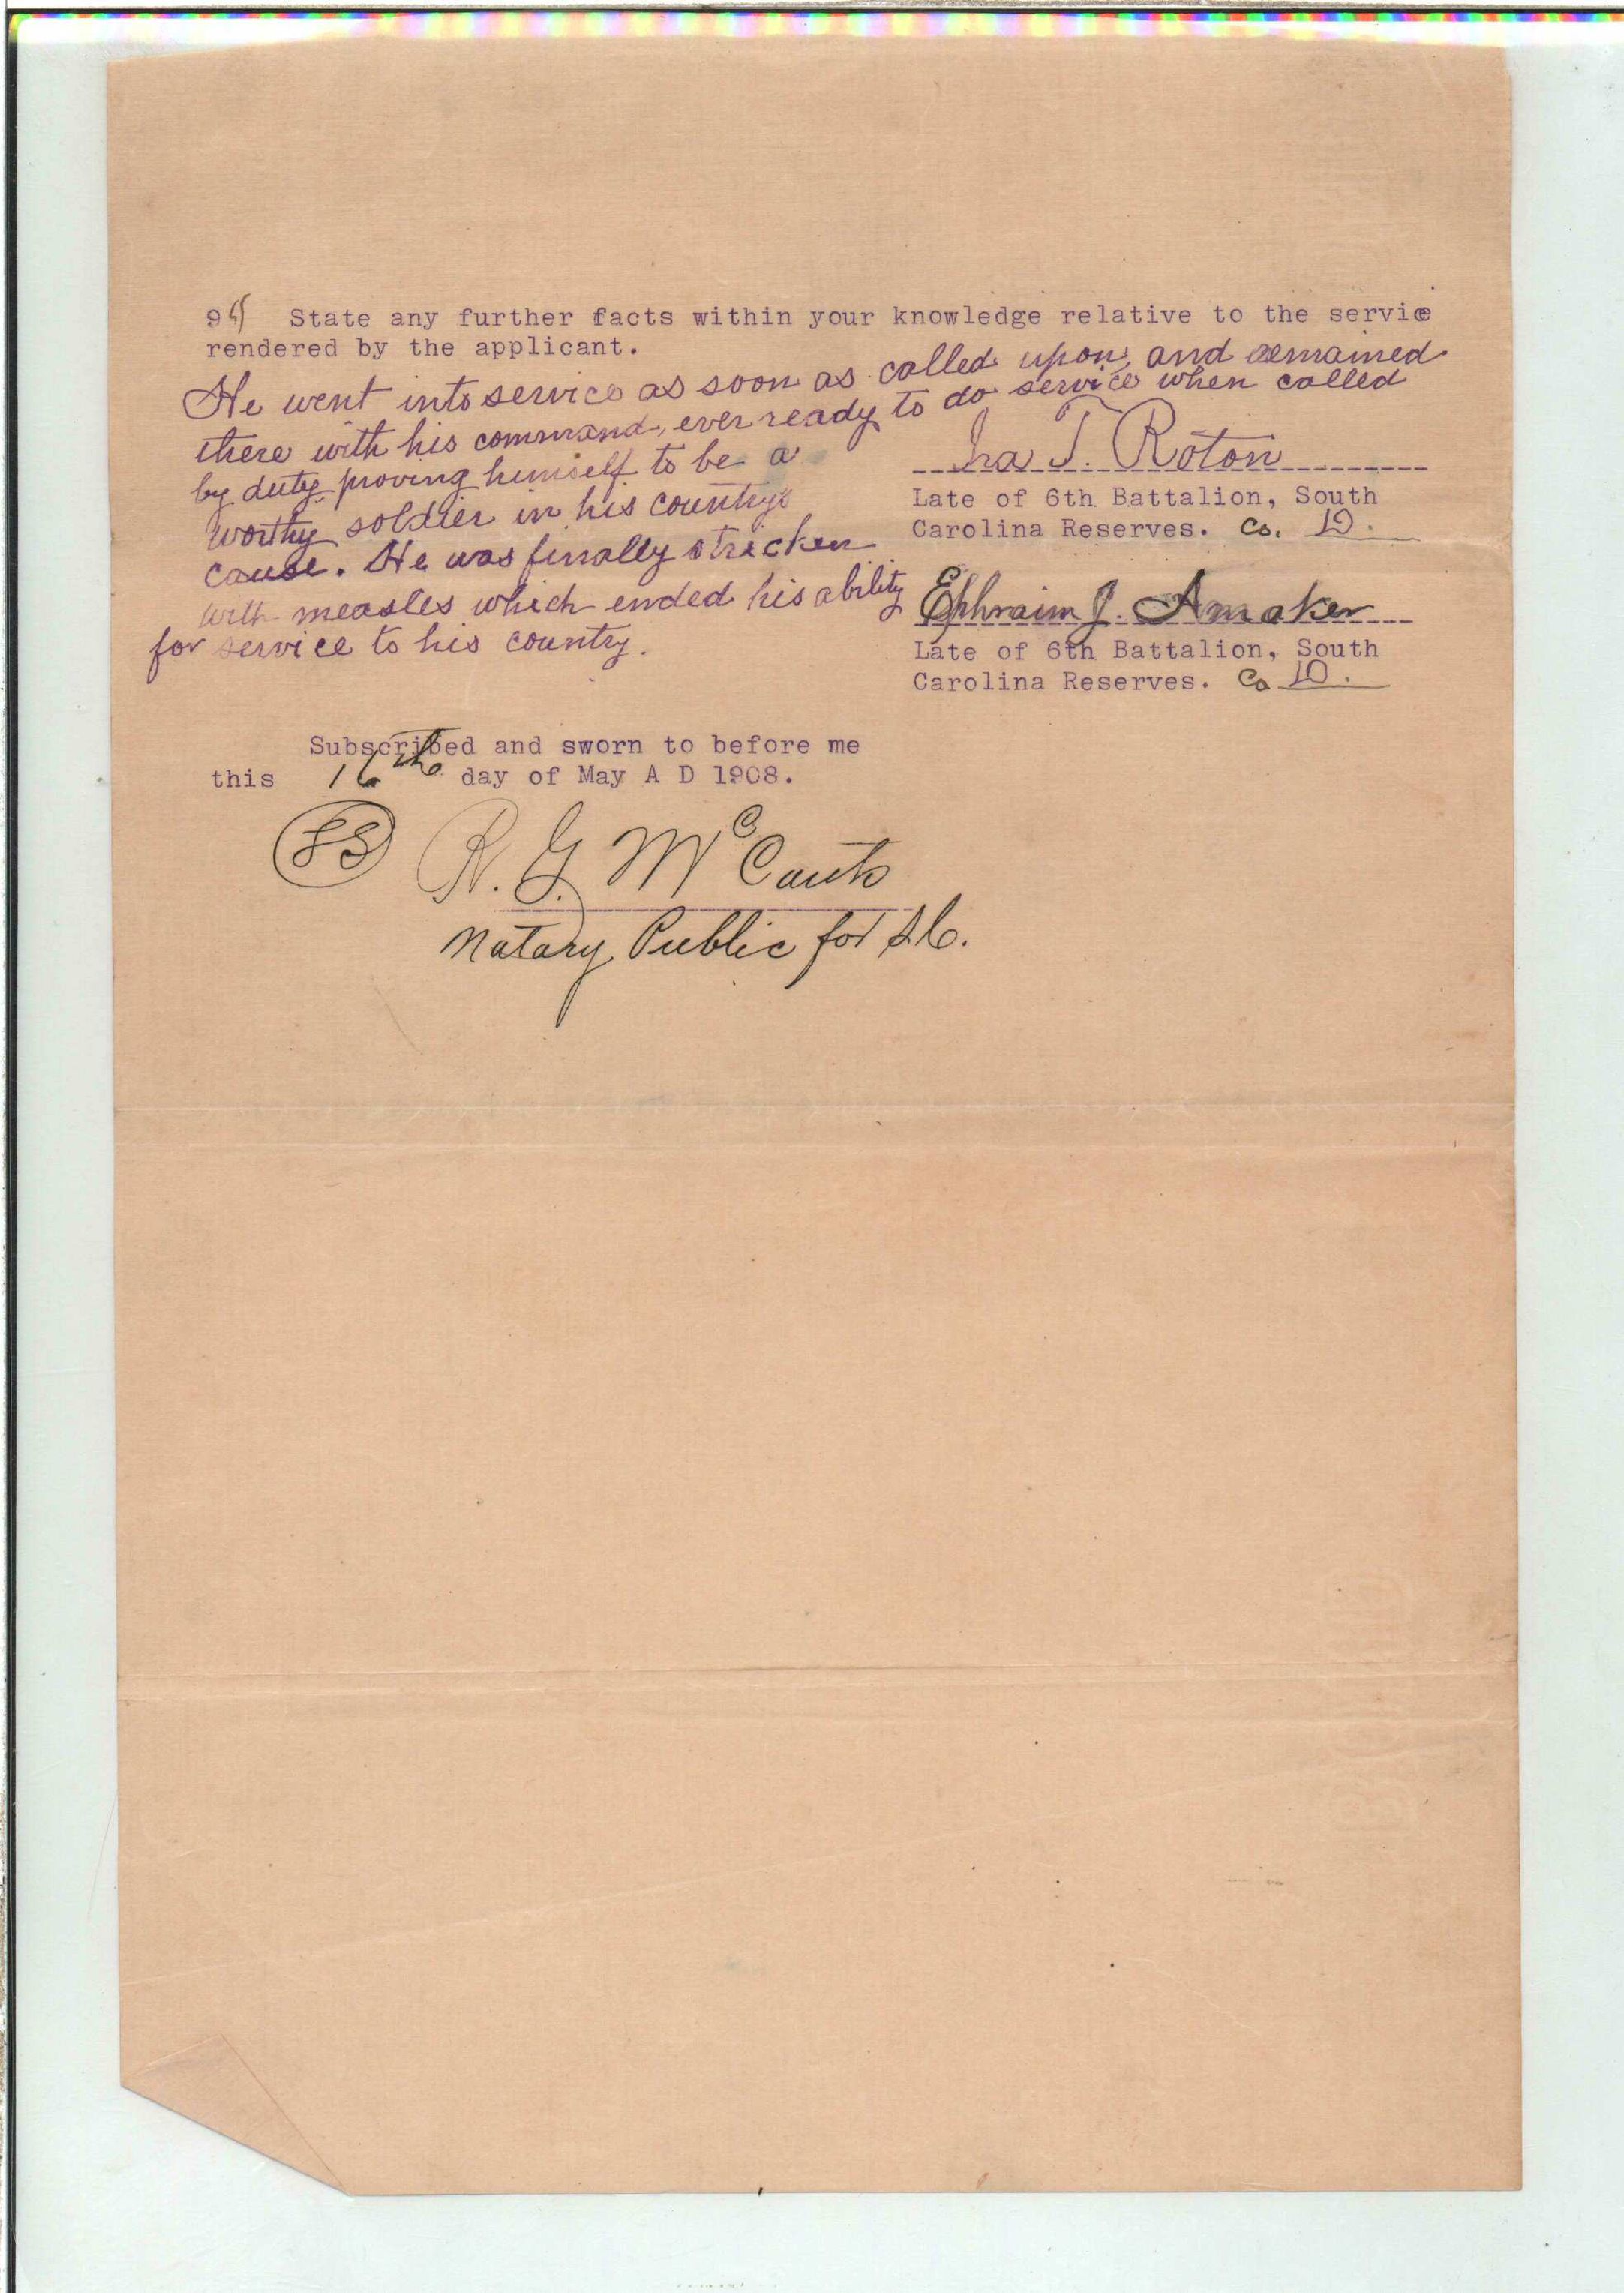 9 State any further facts within your knowledge relative to the service
rendered by the applicant.
He went into service as soon as called upon, and remained
there with his command, ever ready to do service when called
by duty, proving himself to be a
worthy soldier in his country's
cause. He was finally stricken
with measles which ended his ability
for service to his country.
Ira T. Roton
Late of 6th Battalion, South
Carolina Reserves. Co. D.
Ephraim J. Amaker
Late of 6th Battalion, South
Carolina Reserves. Co D.
Subscribed and sworn to before me
this 16th day of May A D 1908.
R. G. McCants
Notary Public for S.C.